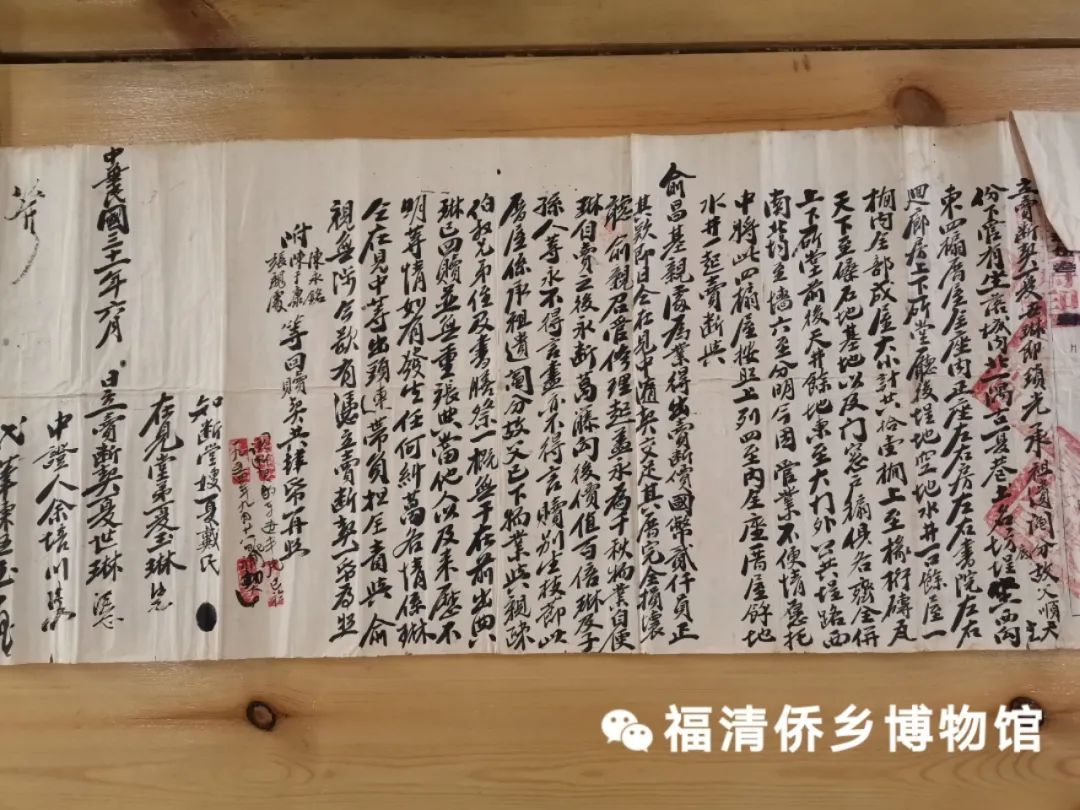 立賣斷契夏世琳即鎖光承祖遺鬮分故父順天
份下官有坐落城內北一隅古夏巷土名
東四扇厝屋壹座內正座左右房左右書院左右
迴廊房上下所堂廳後埕地空地水井一口餘屋一
櫊內全部成屋大小計共拾壹櫊上至椽桁磚瓦
天下至磉石地基地以及门窓戶扇俱各齊全併
上下所堂前後天井餘地東至大门外公共埕路西
南北均至墻六至分明今因管業不便情愿托
中將此四扇屋按照上列四至內全座厝屋餘地
水井一起賣斷與
俞昌基親處為業得出賣斷價國幣貳仟員正
其欵即日仝在見中随契交足其厝完全損壞
聽俞親召管修理起蓋永為千秋物業自便
琳自賣之後永斷葛藤向後價值百倍琳及子
孫人等永不得言盡亦不得言贖別生枝節此
厝屋係承祖遺鬮分故父已下物業與親疎
伯叔兄弟侄及書膳祭一概無干在前出典
琳已回贖並無重張典當他人以及来歷不
明等情如有發生任何糾葛各情係琳
仝在見中等出頭連帶負担全責與俞
親無涉今欲有憑立賣斷契一帋為照
附 陳永銘 陳子康 族鳳 等回贖契共 帋再照
中華民國三十一年六月 日立賣斷契夏世琳
知斷堂嫂夏戴氏
在見堂弟夏玉琳
中證人余培川
代筆陳
福清侨乡博物馆